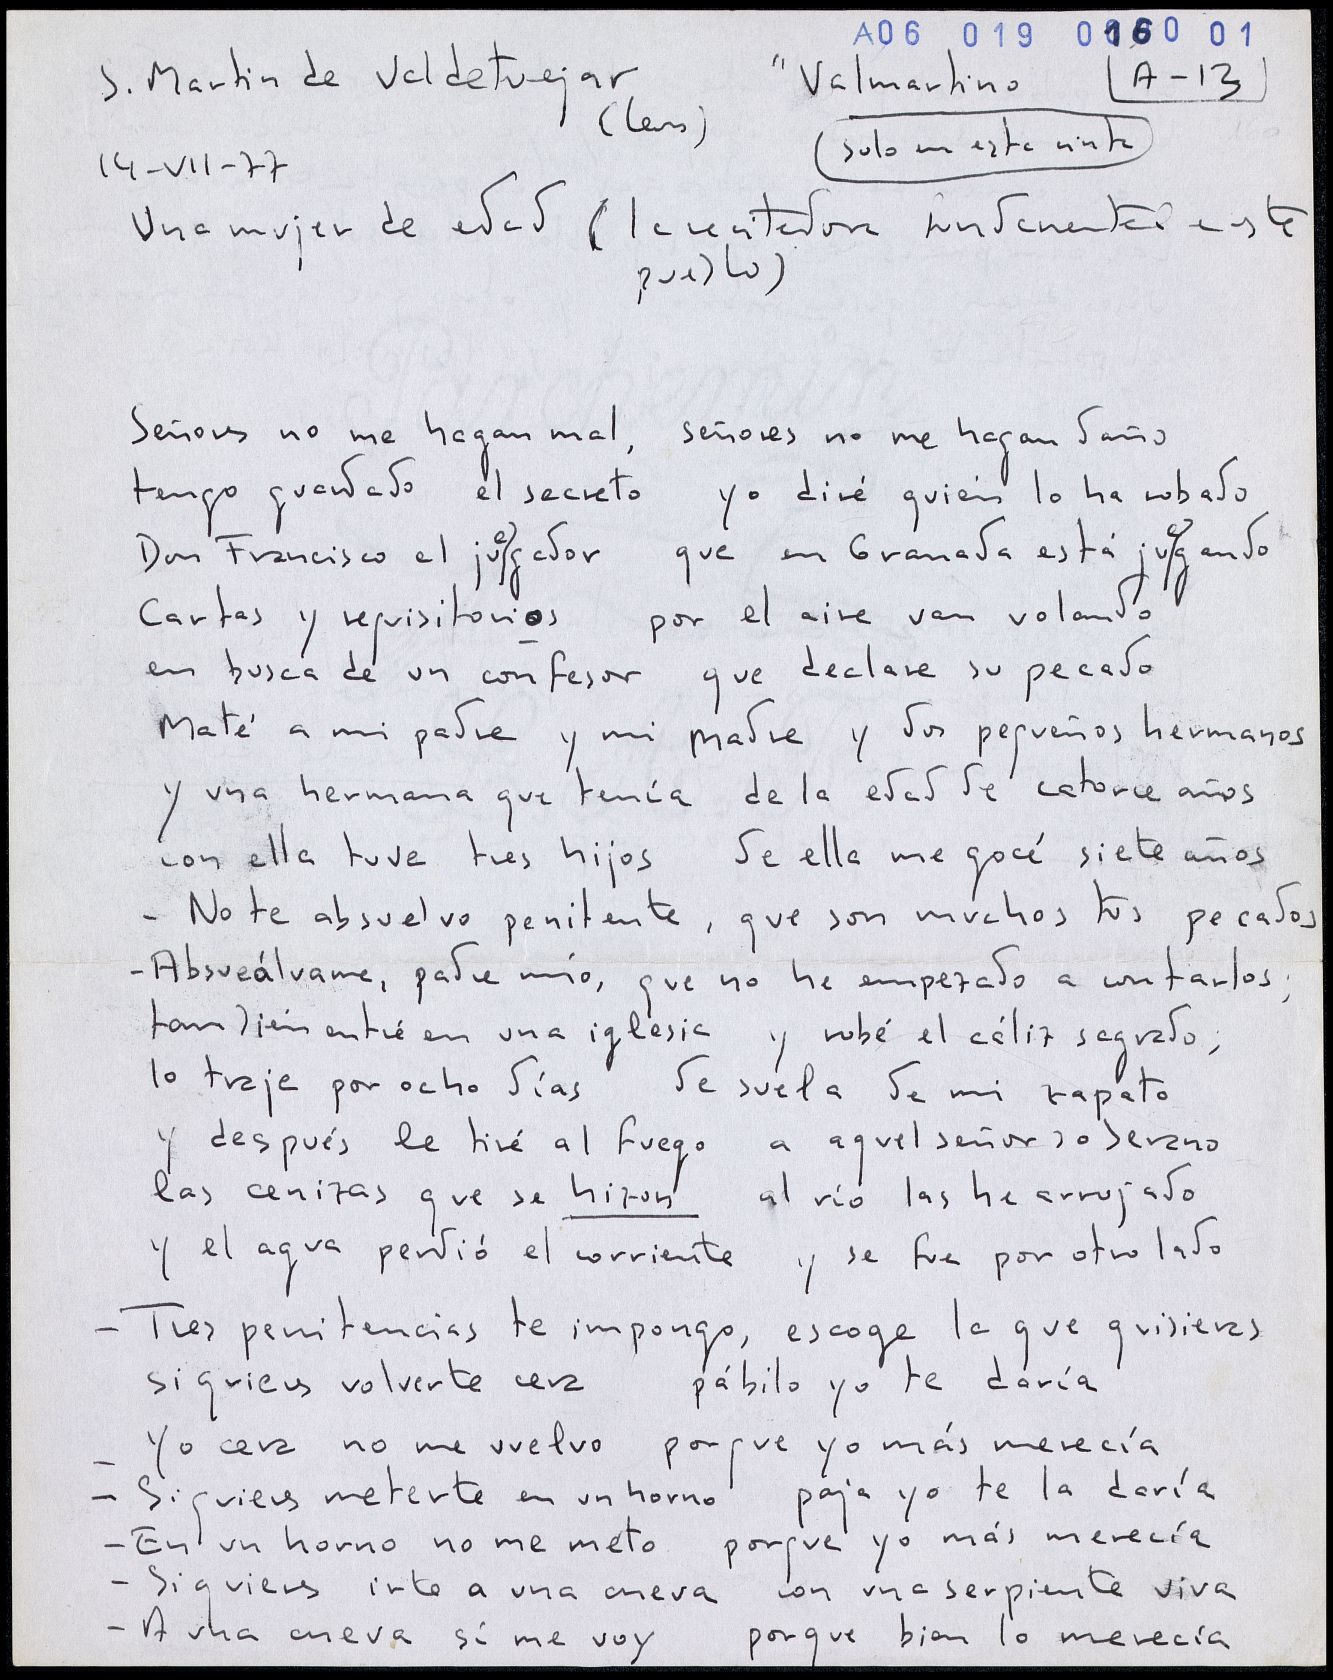 A06 019 0160 01
S. Martin de Valdetuejar "Valmartino A-13
(León) solo en esta cinta
14-VII-77
Una mujer de edad (la recitadora fundamental e este
pueblo)
Señores no me hagan mal, señores no me hagan daño
tengo guardado el secreto yo diré quién lo ha robado
Don Francisco el juegador que en Granada está juegando
Cartas y requisitorios por el aire van volando
en busca de un confesor que declare su pecado
Maté a mi padre y mi madre y dos pequeños hermanos
y una hermana que tenía de la edad de catorce años
con ella tuve tres hijos de ella me gocé siete años
- No te absuelvo penitente, que son muchos tus pecados
- Absueálvame, padre mío, que no he empezado a contarlos;
también entré en una iglesia y robé el cáliz sagrado;
lo traje por ocho días de suela de mi zapato
y después le tiré al fuego a aquel señor soberano
las cenizas que se hizon al río las he arrojado
y el agua perdió el corriente y se fue por otro lado
- Tres penitencias te impongo, escoge la que quisieras
si quieres volverte cera pábilo yo te daría
- Yo cera no me vuelvo porque yo más merecía
- Si quieres meterte en un horno paja yo te la daría
- En un horno no me meto porque yo más merecía
- Si quieres irte a una cueva con una serpiente viva
- A una cueva sí me voy porque bien lo merecía